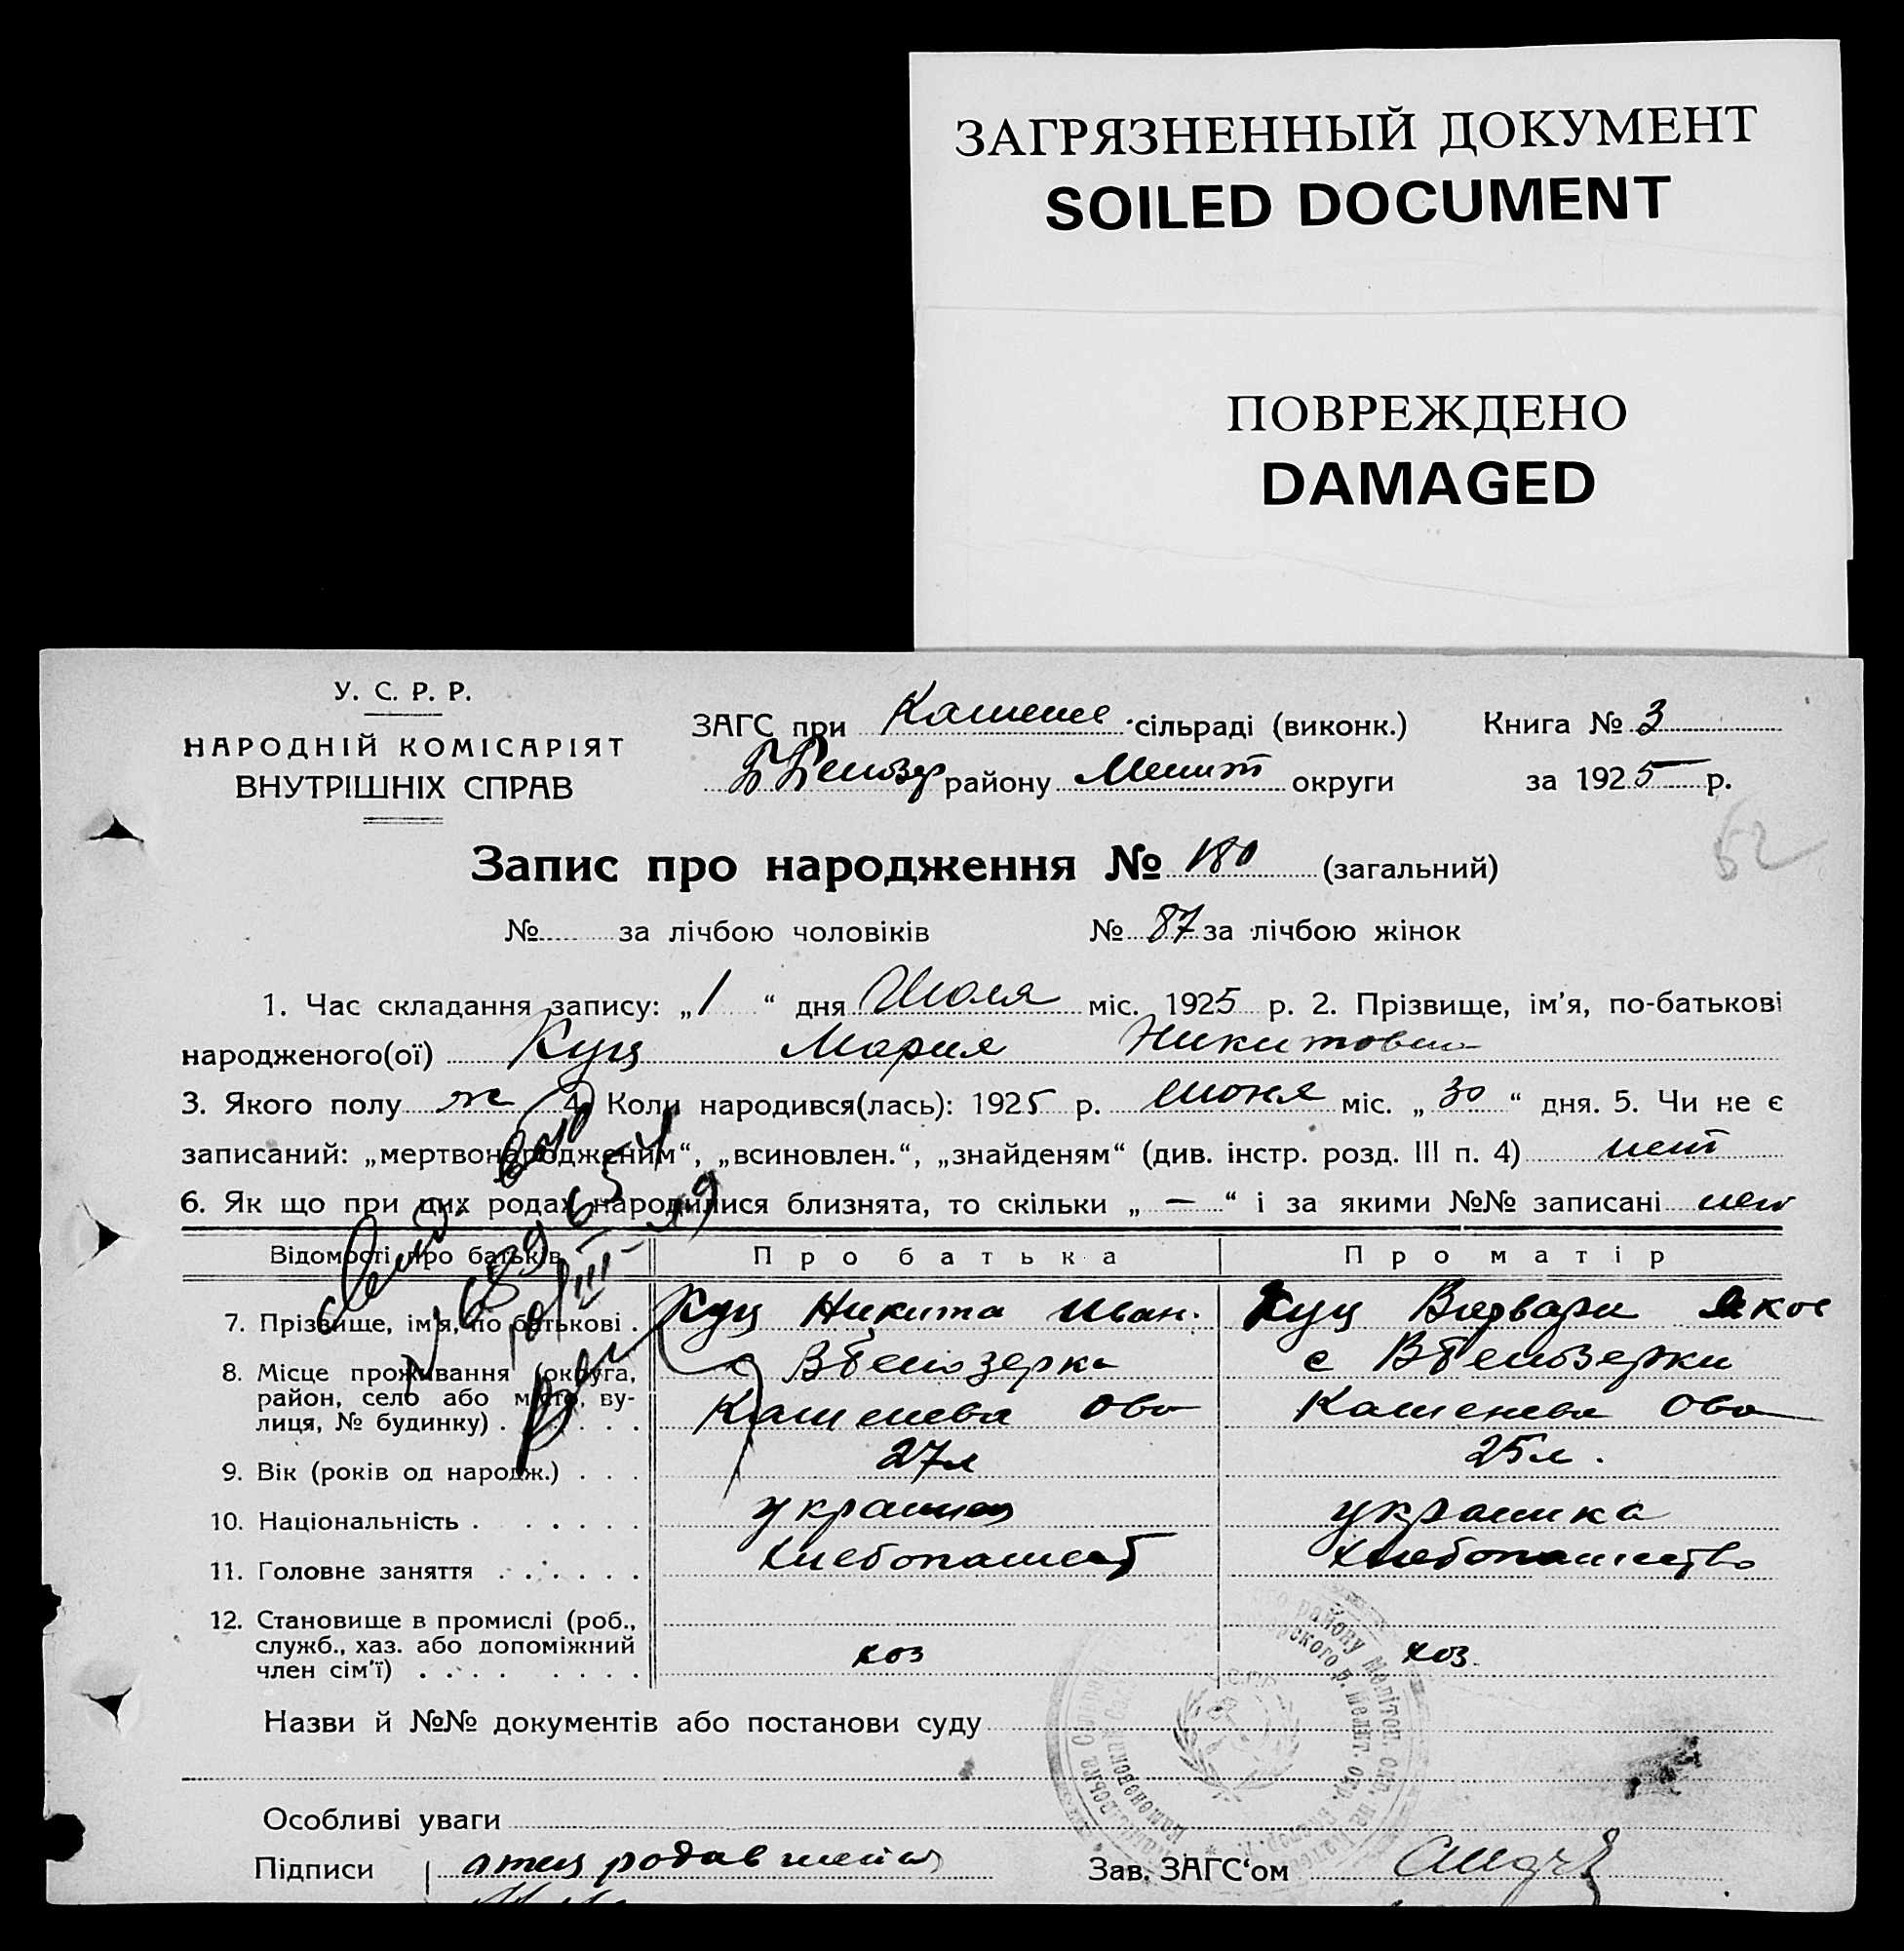 ЗАГРЯЗНЕННЫЙ ДОКУМЕНТ
SOILED DOCUMENT
ПОВРЕЖДЕНО
DAMAGED
У. С. Р. Р.
НАРОДНІЙ КОМІСАРІЯТ
ВНУТРІШНІХ СПРАВ
ЗАГС при сільраді (виконк.) Книга № 3
району Мелит округи за 1925 р.
Запис про народження № 180 (загальний)
62
№ за лічбою чоловіків № 87 за лічбою жінок
1. Час складання запису: „1“ дня Июля міс. 1925 р. 2. Прізвище, ім'я, по-батькові
народженого(ої) Куц Мария Никитовна
3. Якого полу ж 4. Коли народився(лась): 1925 р. июня міс. „30“ дня. 5. Чи не є
записаний: „мертвонародженим“, „всиновлен.“, „знайденям“ (див. інстр. розд. III п. 4) нет
6. Як що при цих родах народилися близнята, то скільки „—“ і за якими №№ записані нет
Відомості про батьків Про батька Про матір
7. Прізвище, ім'я, по батькові . Куц Никита Иван. Куц Варвара
8. Місце проживання (округа, с Вбелозерка с Вбелозерки
район, село або місто, ву-
лиця, № будинку) . Кашенева Ова Кашенева Ова
9. Вік (років од народж.) . . . 27л 25л.
10. Національність . . . . . . украинец украинка
11. Головне заняття . . . . . . хлебопашест хлебопашество
12. Становище в промислі (роб.,
служб., хаз. або допоміжний хоз хоз.
член сім'ї) . . . . . . . .
Назви й №№ документів або постанови суду
Особливі уваги
Підписи отец Зав. ЗАГС'ом